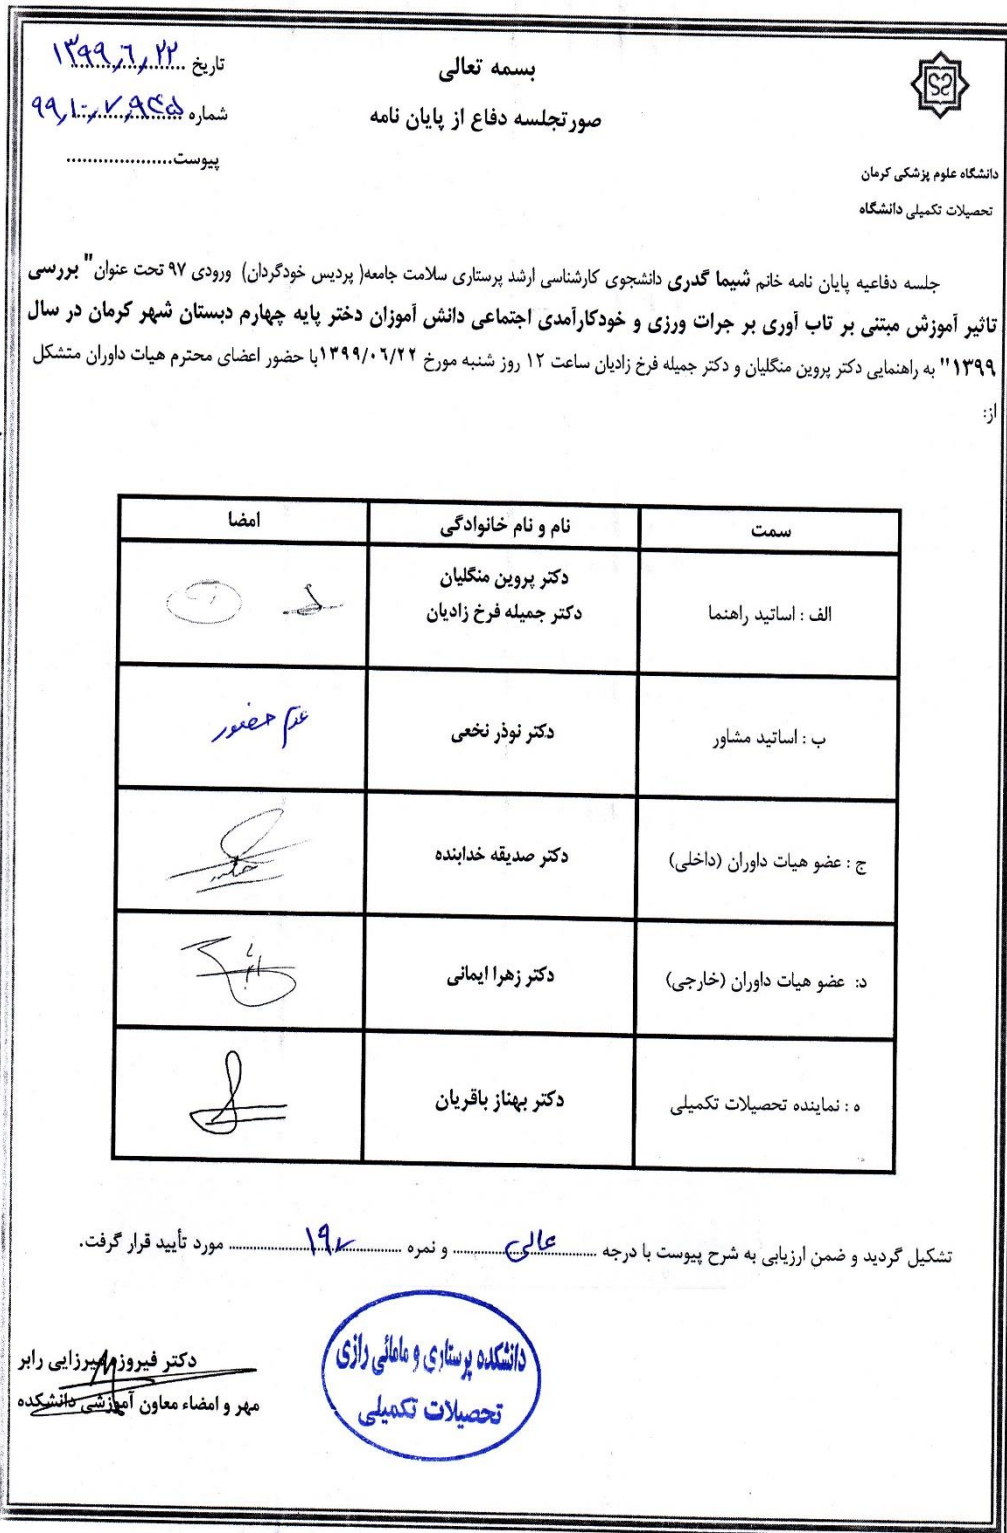 بسمه تعالی
صورتجلسه دفاع از پایان نامه
تاریخ ۱۳۹۹٫۶٫۲۲
شماره
پیوست....................
دانشگاه علوم پزشکی کرمان
تحصیلات تکمیلی دانشگاه
جلسه دفاعیه پایان نامه خانم شیما گدری دانشجوی کارشناسی ارشد پرستاری سلامت جامعه( پردیس خودگردان) ورودی ۹۷ تحت عنوان" بررسی
تاثیر آموزش مبتنی بر تاب آوری بر جرات ورزی و خودکارآمدی اجتماعی دانش آموزان دختر پایه چهارم دبستان شهر کرمان در سال
۱۳۹۹" به راهنمایی دکتر پروین منگلیان و دکتر جمیله فرخ زادیان ساعت ۱۲ روز شنبه مورخ ۱۳۹۹/۰۶/۲۲با حضور اعضای محترم هیات داوران متشکل
از:
سمت نام و نام خانوادگی امضا
دکتر پروین منگلیان
الف : اساتید راهنما دکتر جمیله فرخ زادیان
ب : اساتید مشاور دکتر نوذر نخعی عدم حضور
ج : عضو هیات داوران (داخلی) دکتر صدیقه خدابنده
د: عضو هیات داوران (خارجی) دکتر زهرا ایمانی
ه : نماینده تحصیلات تکمیلی دکتر بهناز باقریان
تشکیل گردید و ضمن ارزیابی به شرح پیوست با درجه عالی و نمره مورد تأیید قرار گرفت.
دانشکده پرستاری و مامائی رازی
تحصیلات تکمیلی
دکتر فیروزه میرزایی رابر
مهر و امضاء معاون آموزشی دانشکده